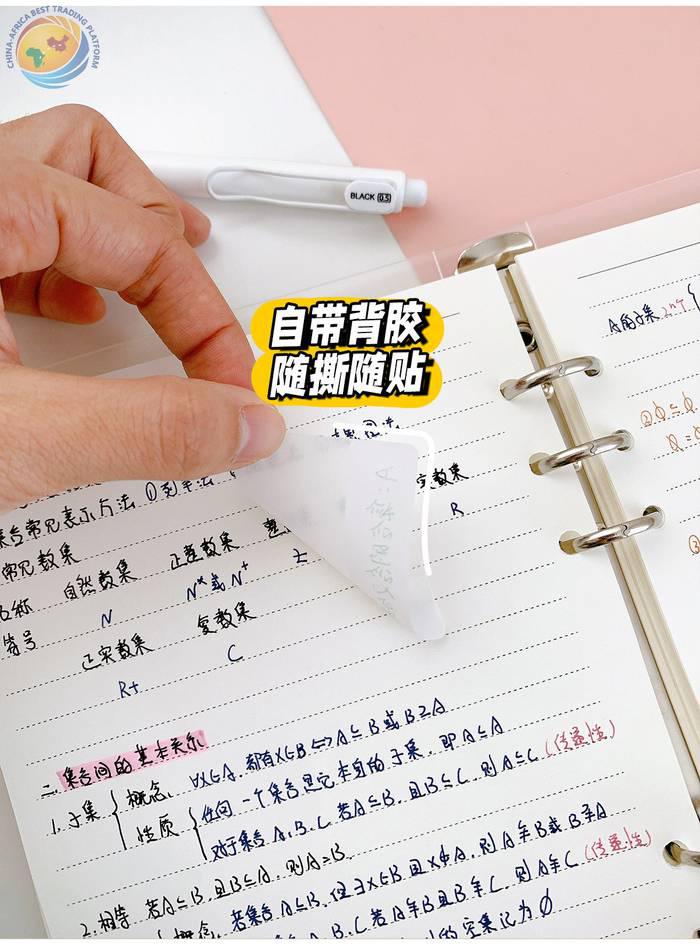 CHINA-AFRICA BEST TRADING PLATFORM
BLACK 0.5
自带背胶
随撕随贴
A的子集 2ⁿ个
常见数集
名称 自然数集 正整数集
R
符号 N N* 或 N⁺ Z
正实数集 复数集
R+ C
二. 集合间的基本关系
1. 子集 概念: ∀x∈A, 都有x∈B ⇔ A⊆B 或 B⊇A
性质 任何一个集合是它本身的子集, 即 A⊆A
对于集合 A、B、C, 若A⊆B, 且B⊆C, 则A⊆C (传递性)
2. 相等: 若A⊆B, 且B⊆A, 则A=B.
概念: 若集合A⊆B, 但∃x∈B, 且x∉A, 则A⫋B或B⫌A
A、B、C, 若A⫋B且B⫋C, 则A⫋C (传递性)
的空集记为∅